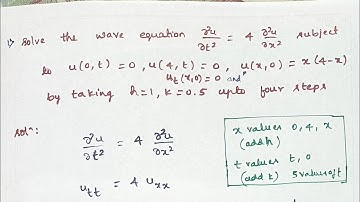 1) Solve the wave equation ∂²u/∂t² = 4 ∂²u/∂x² subject
to u(0,t) = 0, u(4,t) = 0, u(x,0) = x(4-x)
u_t(x,0) = 0 and
by taking h=1, k=0.5 upto four steps
soln:
∂²u/∂t² = 4 ∂²u/∂x²
u_tt = 4 u_xx
x values 0, 4, x
(add h)
t values t, 0
(add t) 5 values of t